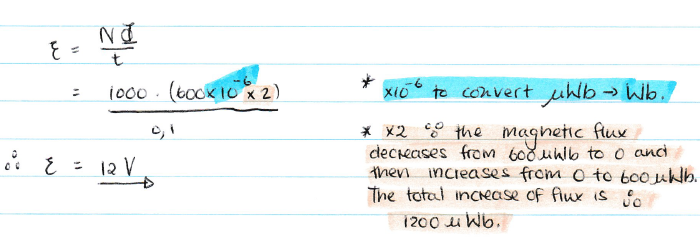 ξ = NΦ / t
= 1000 . (600x10⁻⁶ x 2)
0,1
∴ ξ = 12 V
* x10⁻⁶ to convert μWb → Wb.
* x2 ∵ the magnetic flux
decreases from 600 μWb to 0 and
then increases from 0 to 600 μWb.
The total increase of flux is ∴
1200 μ Wb.